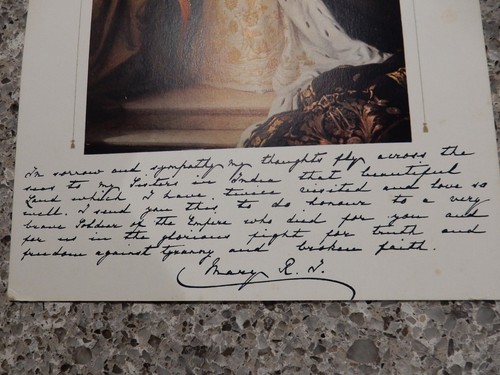 In sorrow and sympathy my thoughts fly across the
seas to my Sisters in India that beautiful
land which I have twice visited and love so
well. I send you this to do honour to a very
brave Soldier of the Empire who died for you and
for us in the glorious fight for truth and
freedom against tyranny and broken faith.
Mary R. I.